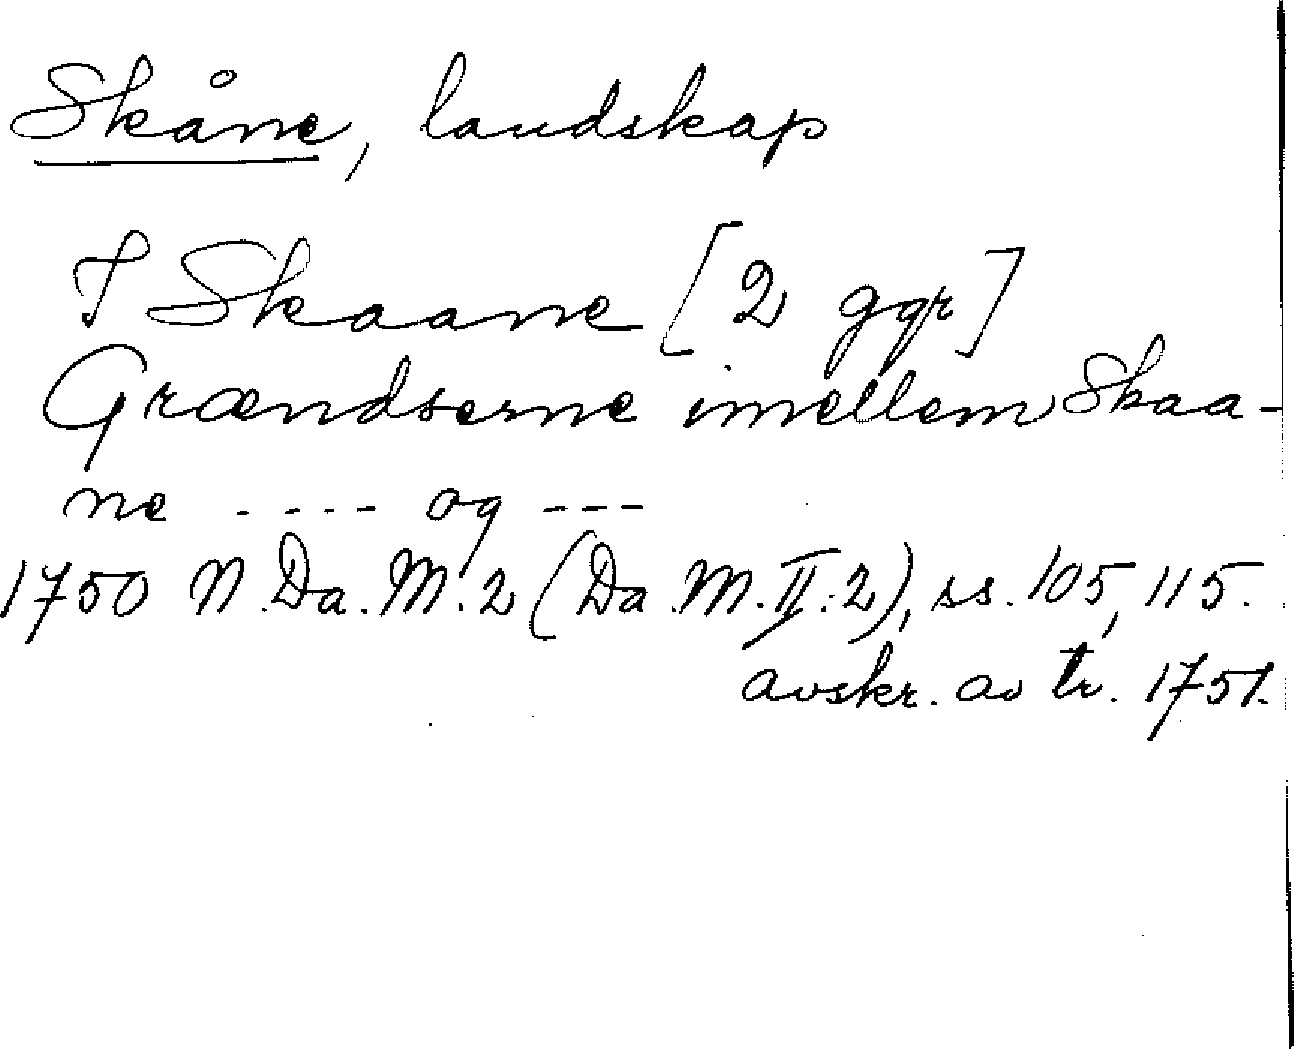 Skåne, landskap
I Skaane [2 ggr]
Grændserne imellem Skaa-
ne ---- og ---
1750 N.Da.M.2 (Da.M.II:2), ss. 105, 115.
avskr. av tr. 1751.